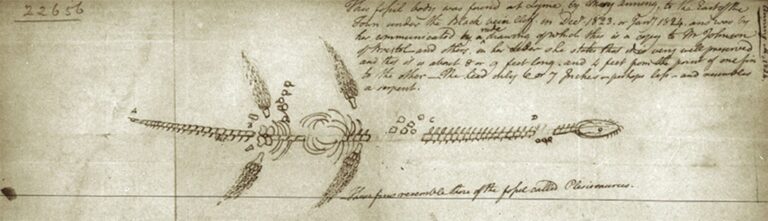 22656
This fossil body was found at Lyme, by Mary Anning, to the East of the
Town under the Black Cliff in Decr. 1823. or Jany. 1824. and was by
her communicated by a drawing of which this is a copy to Mr Johnson
of Bristol and others. in her letter she states that it is very well preserved
and this is about 8 or 9 feet long, and 4 feet from the point of one fin
to the other — The head only 6 or 7 Inches — perhaps less — and resembles
a serpent.
These fins resemble those of the fossil called Plesiosaurus.